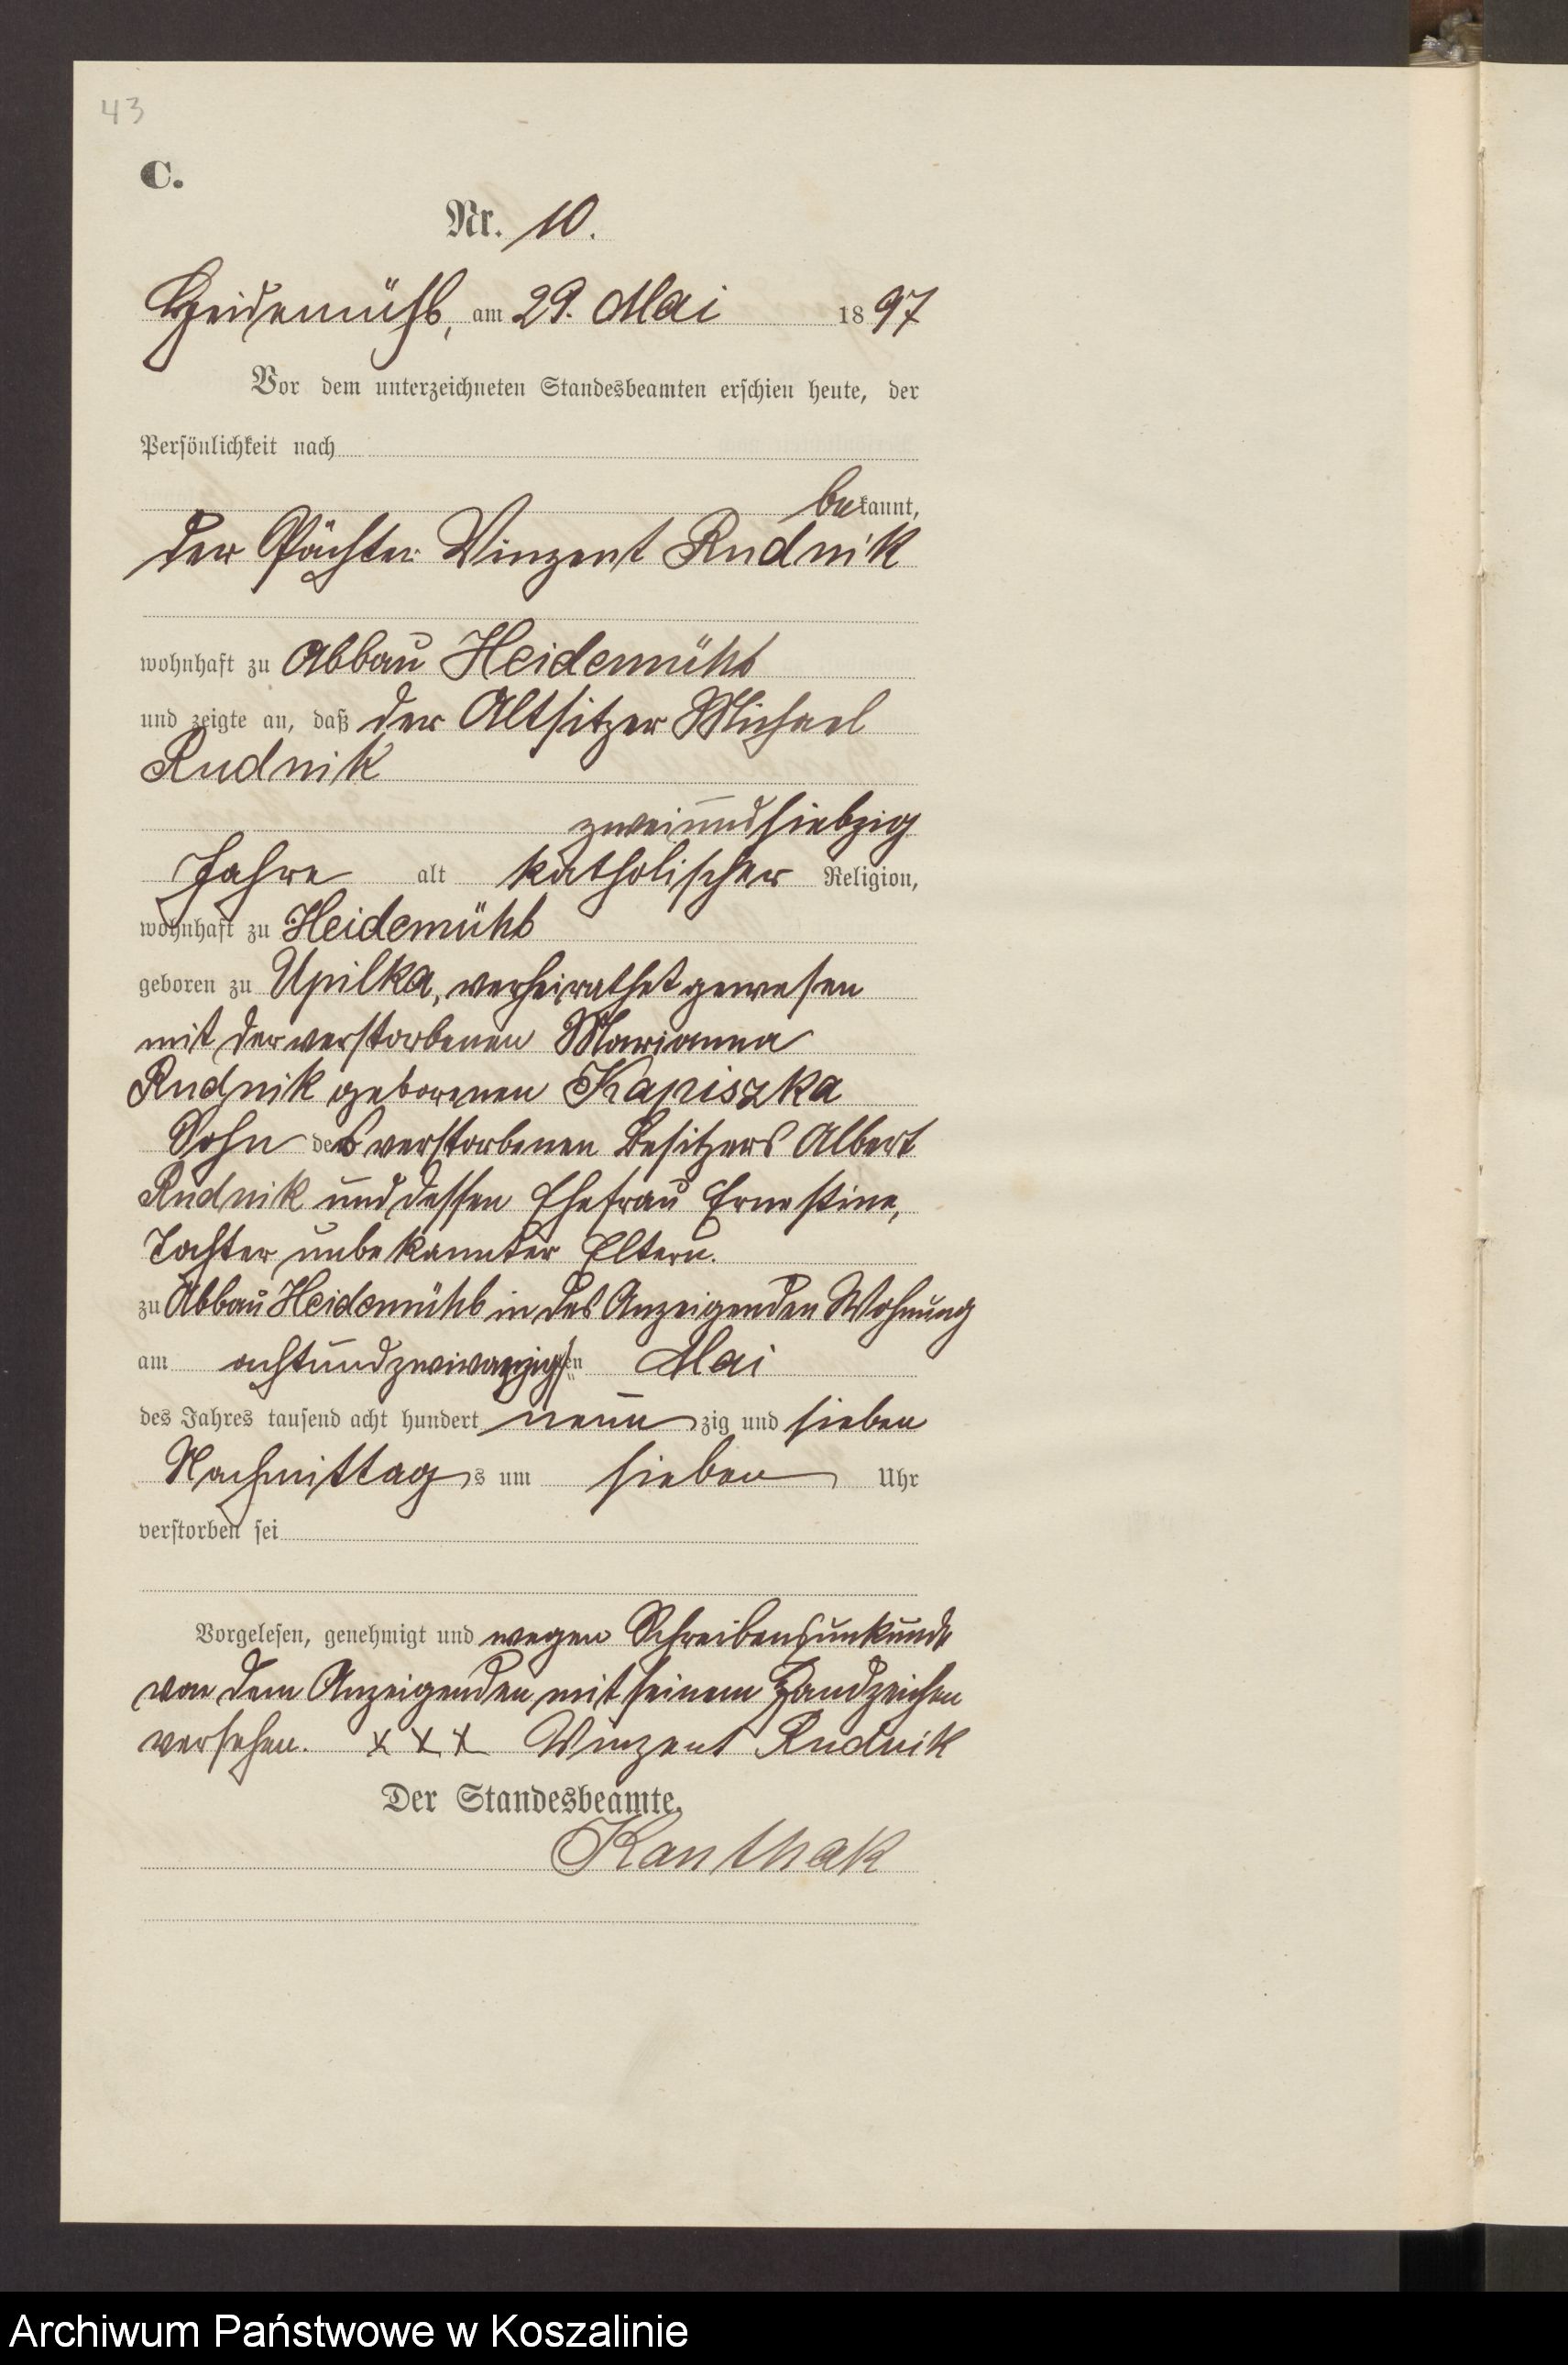 43
C.
Nr. 10.
Heidemühl, am 29. Mai 1897
Vor dem unterzeichneten Standesbeamten erschien heute, der
Persönlichkeit nach
bekannt,
der Pächter Vinzent Rudnik
wohnhaft zu Abbau Heidemühl
und zeigte an, daß der Altsitzer Michael
Rudnik
zweiundsiebzig
Jahre alt katholischer Religion,
wohnhaft zu Heidemühl
geboren zu Upilka, verheirathet gewesen
mit der verstorbenen Marianna
Rudnik geborenen Kapiszka
Sohn des verstorbenen Besitzers Albert
Rudnik und dessen Ehefrau Ernestine,
Tochter unbekannter Eltern.
zu Abbau Heidemühl in des Anzeigenden Wohnung
am achtundzwanzigsten Mai
des Jahres tausend acht hundert neunzig und sieben
Nachmittags um sieben Uhr
verstorben sei
Vorgelesen, genehmigt und wegen Schreibensunkunde
von dem Anzeigenden mit seinem Handzeichen
versehen. x x x Vinzent Rudnik
Der Standesbeamte.
Kanthak
Archiwum Państwowe w Koszalinie